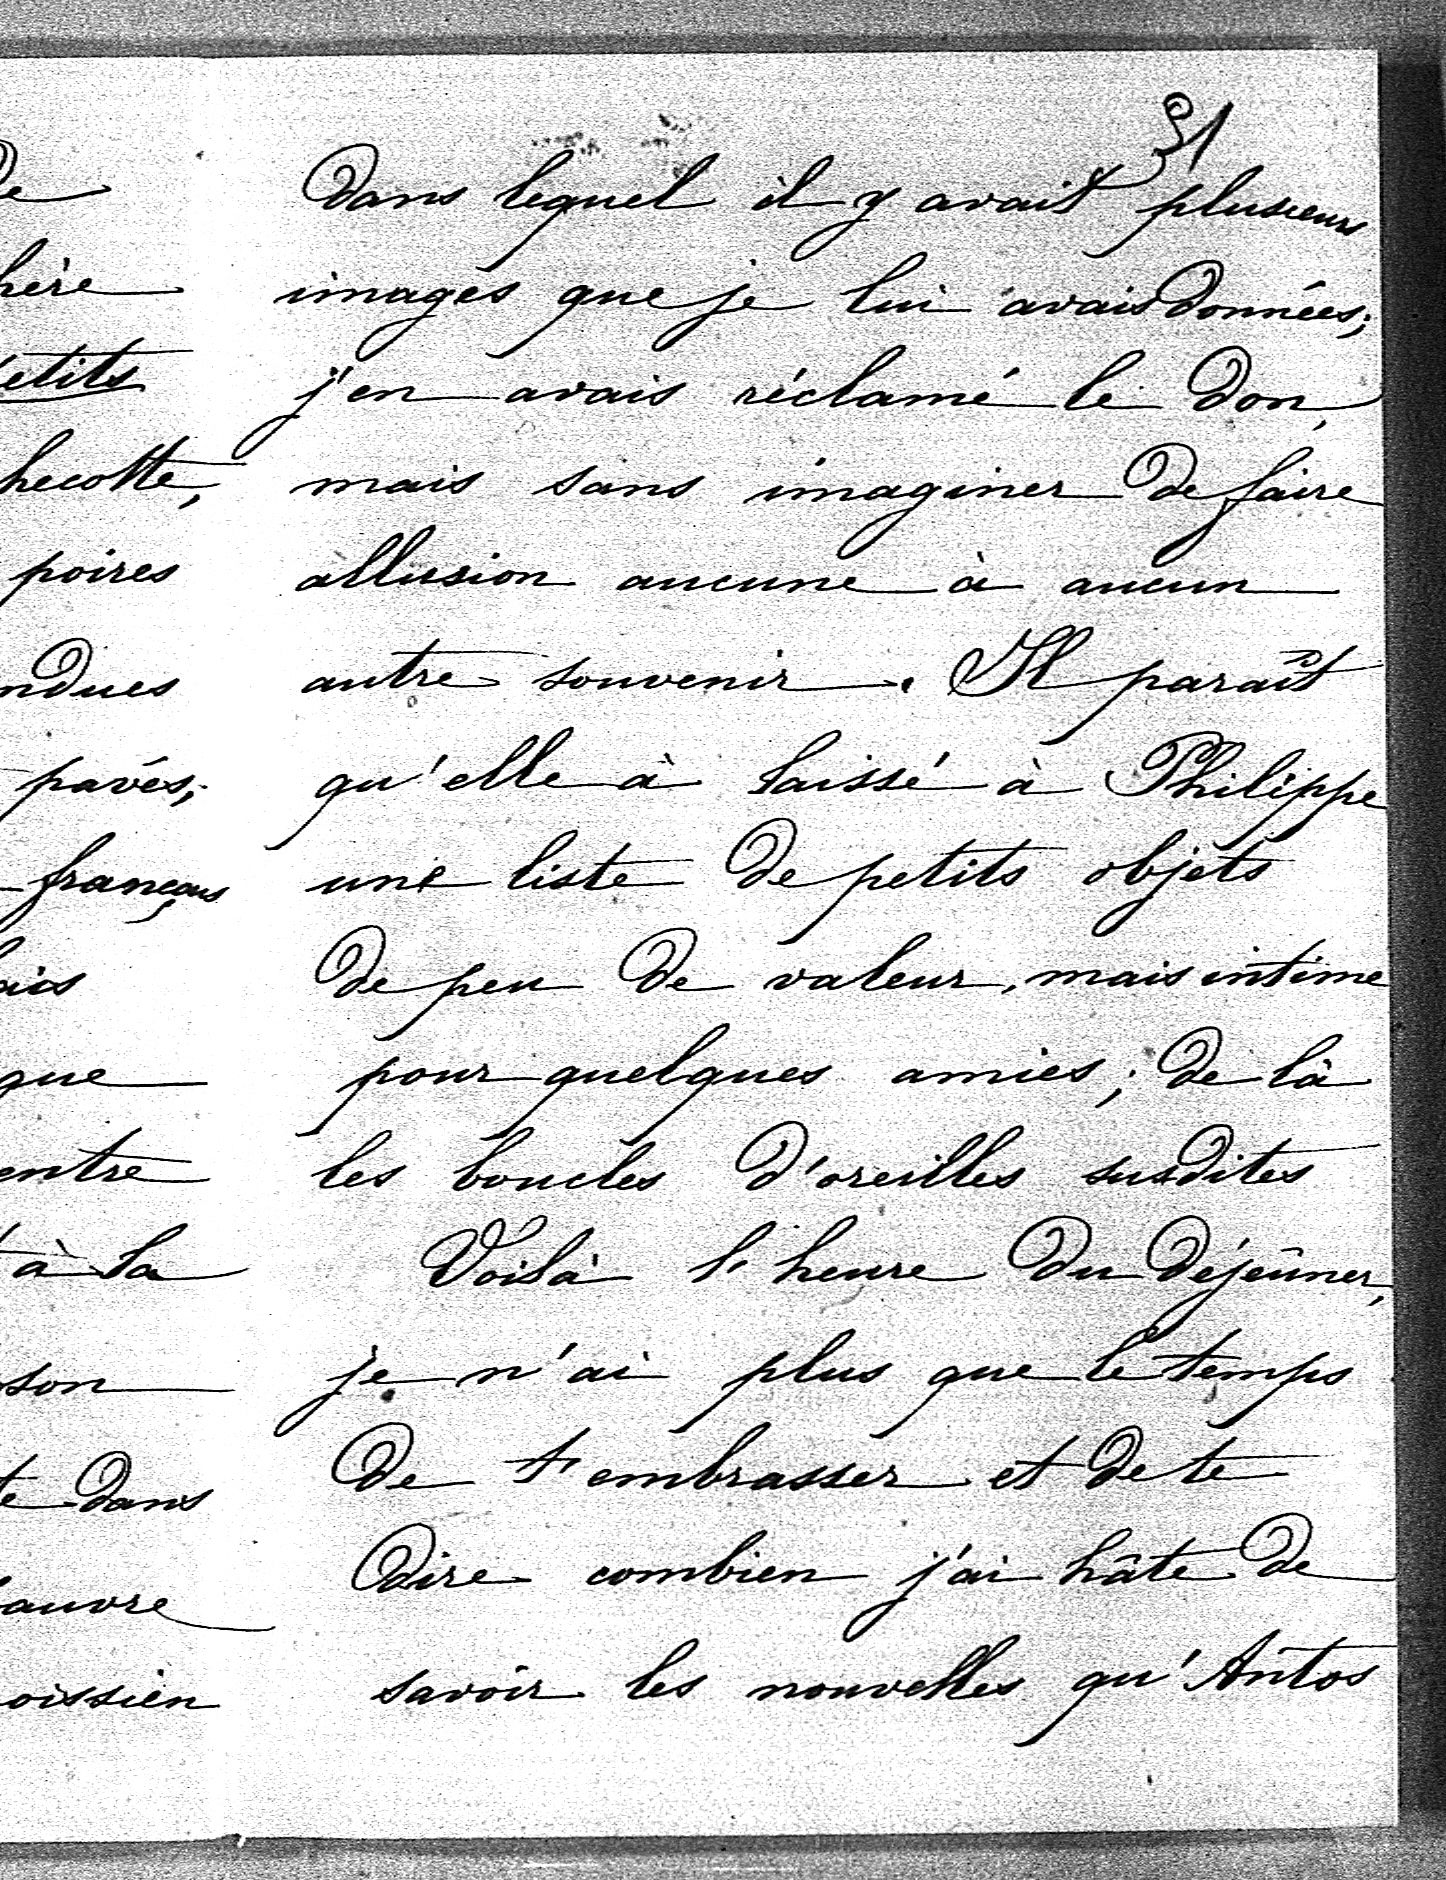 de
hère
etits
hecotte,
poires
ndues
pavés,
français
ais
que
entre
à la
son
te dans
auvre
oissien
31
dans lequel il y avait plusieurs
images que je lui avais données;
j'en avais réclamé le don,
mais sans imaginer de faire
allusion aucune à aucun
autre souvenir. Il paraît
qu'elle à laissé à Philippe
une liste de petits objets
de peu de valeur, mais intime
pour quelques amies; de là
les boucles d'oreilles susdites
Voilà l'heure du déjeûner,
je n'ai plus que le temps
de t'embrasser et de te
dire combien j'ai hâte de
savoir les nouvelles qu'Antos